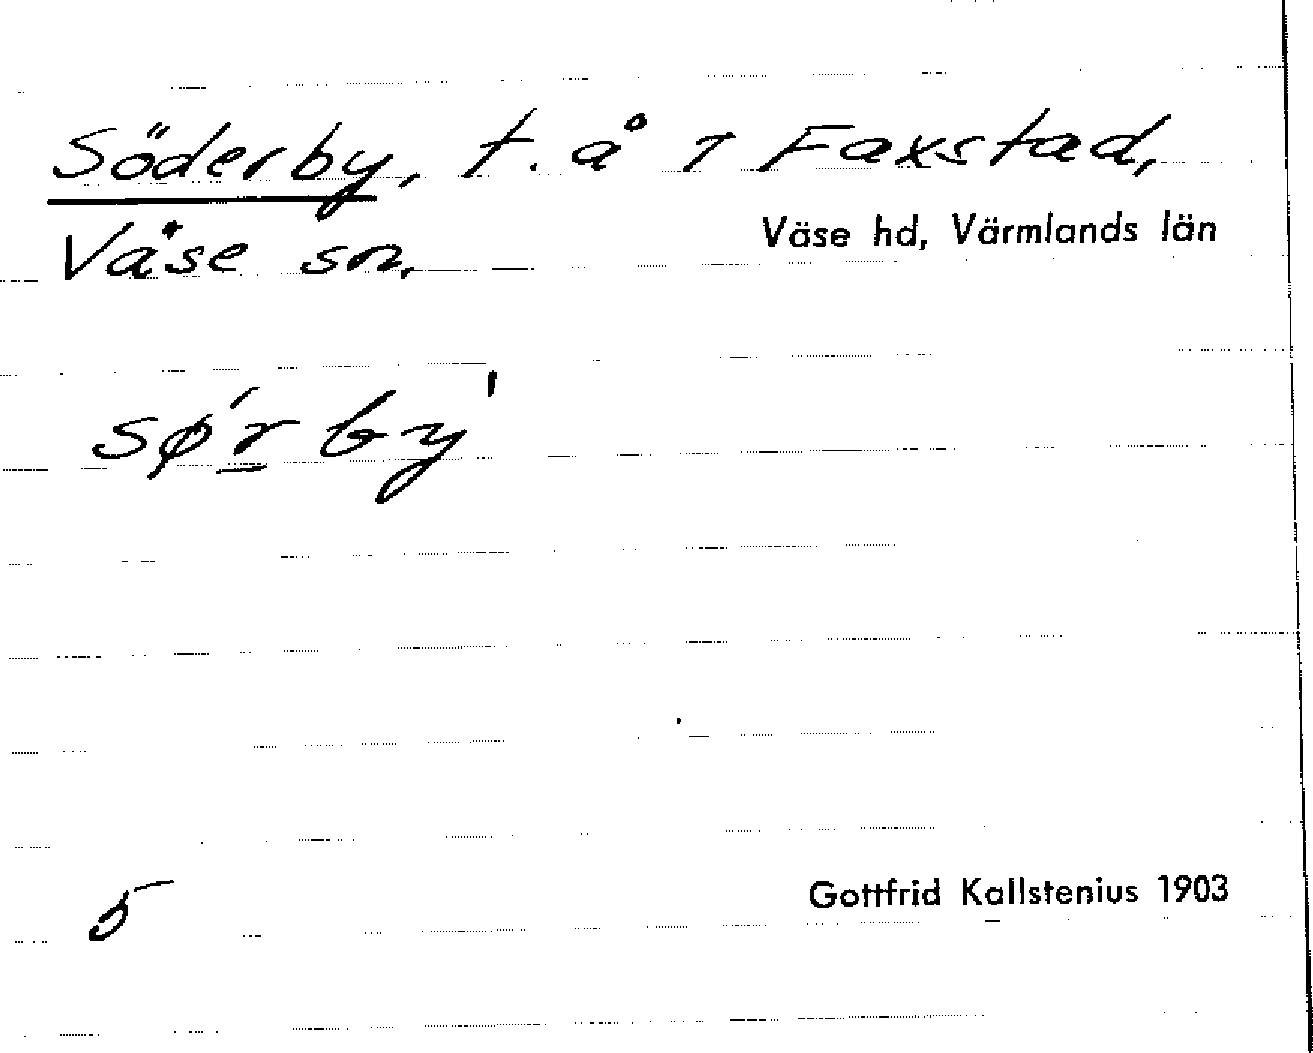 Söderby, t. å 1 Faxstad,
Väse hd, Värmlands län
Väse sn.
sø´r by'
5
Gottfrid Kallstenius 1903